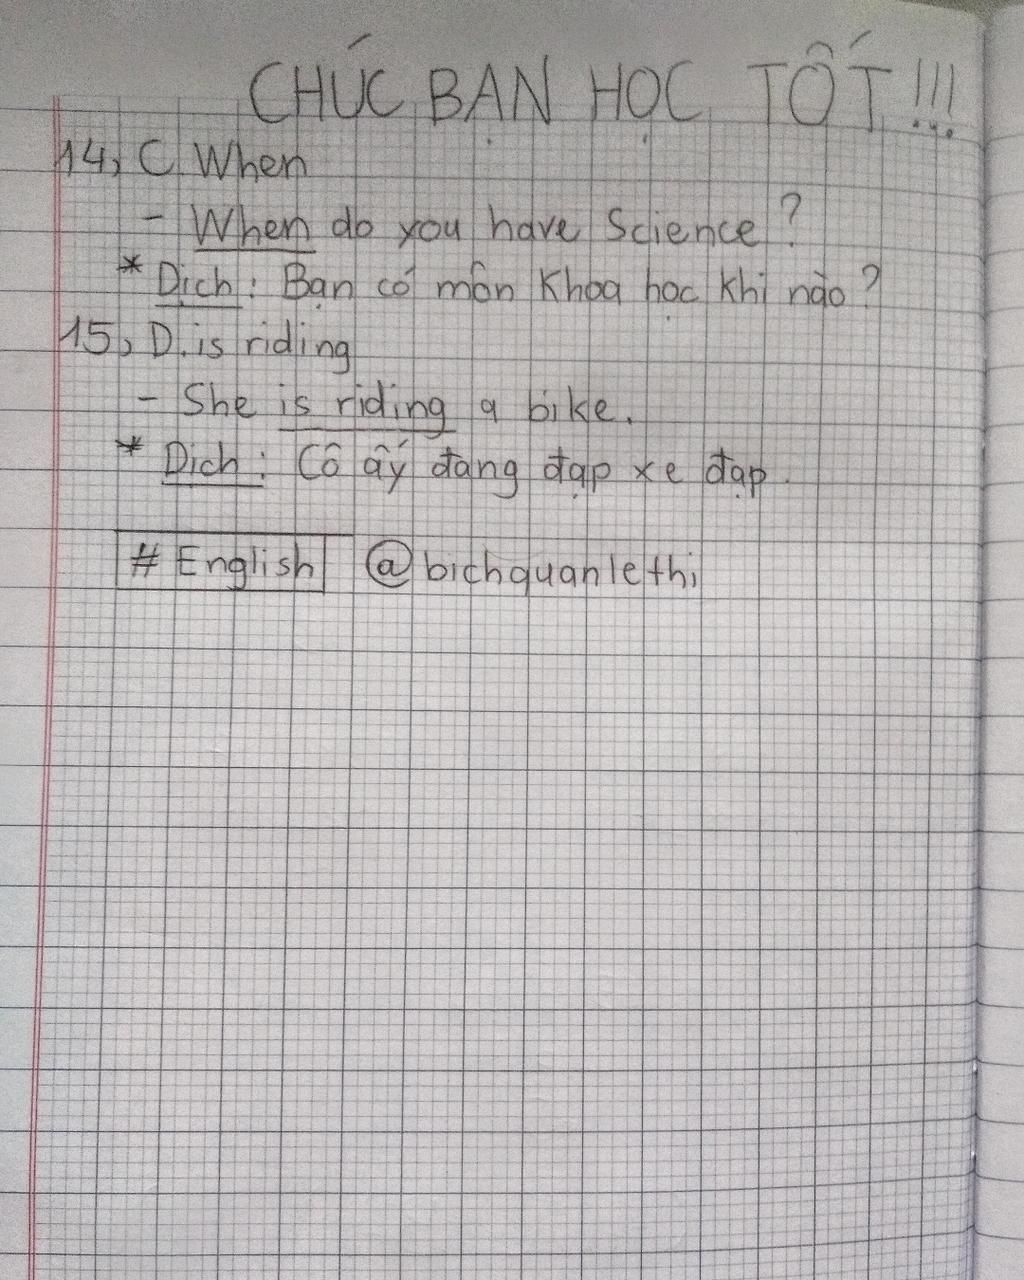 CHÚC BẠN HỌC TỐT!!!
14, C. When
- When do you have Science?
* Dịch: Bạn có môn Khoa học khi nào?
15, D. is riding
- She is riding a bike.
* Dịch: Cô ấy đang đạp xe đạp.
# English @bichquanlethi